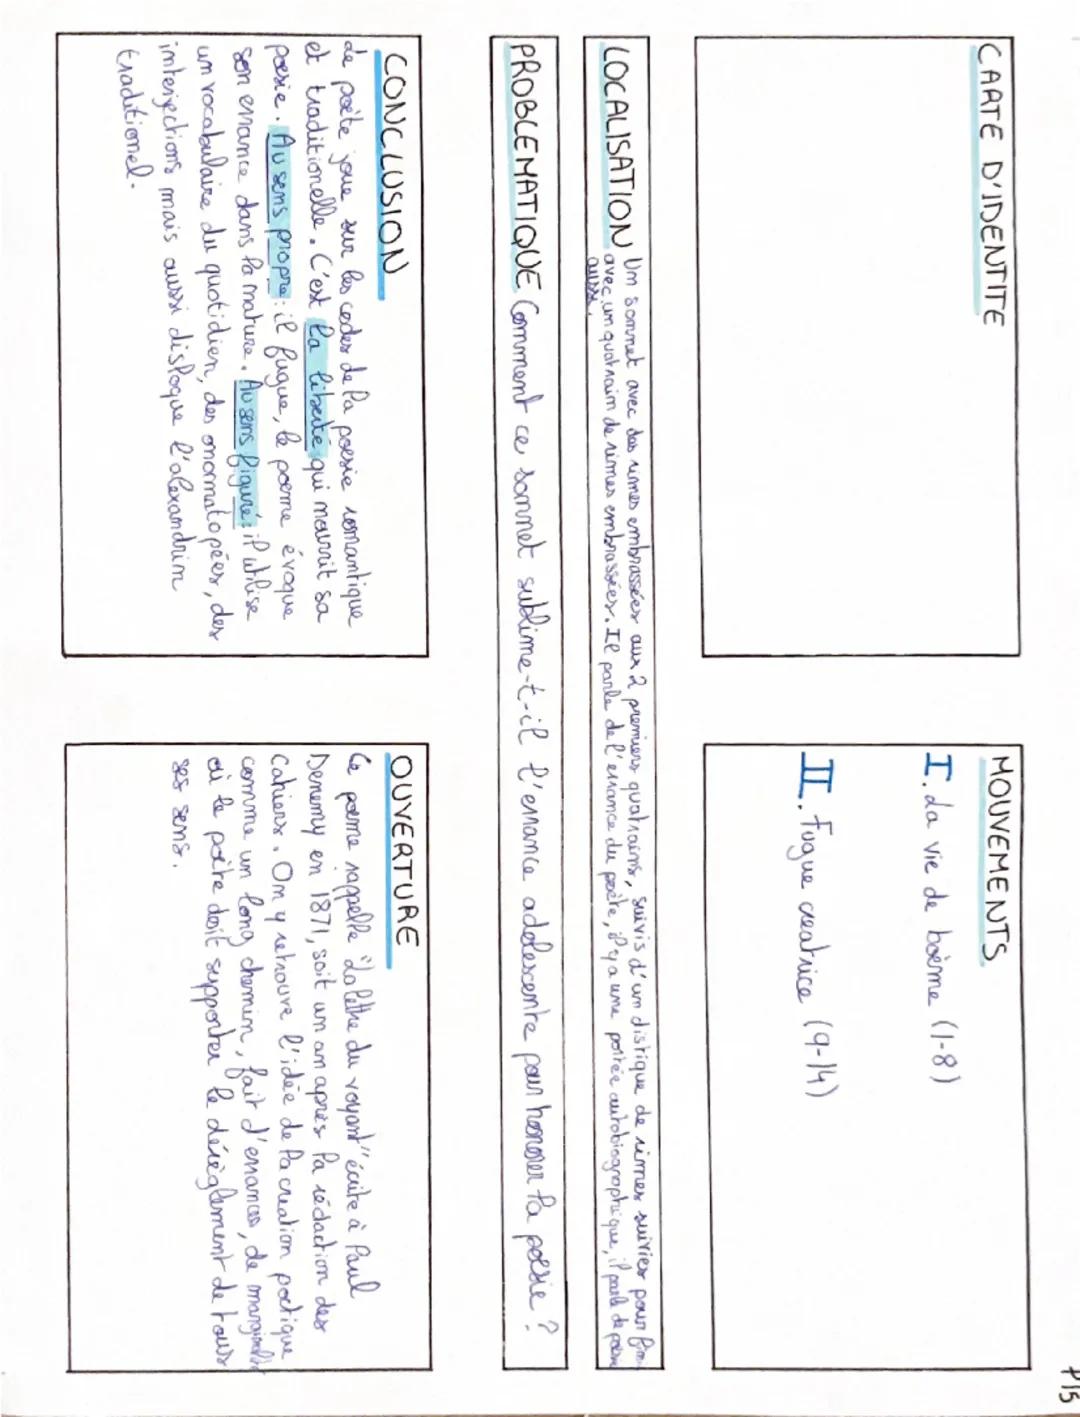 P15
CARTE D'IDENTITE
MOUVEMENTS
I. La vie de boème (1-8)
II. Fugue creatrice (9-14)
LOCALISATION Un sonnet avec des rimes embrassées aux 2 premiers quatrains, suivis d'un distique de rimes suivies pour
avec un quatrain de rimes embrassées. Il parle de l'errance du poète, il y a une portée autobiographique, il parle de
aussi.
PROBLEMATIQUE Comment ce sonnet sublime-t-il l'errance adolescente pour honorer la poésie ?
CONCLUSION
Le poète joue sur les codes de la poesie romantique
et traditionelle. C'est la liberté qui nourrit sa
poesie. Au sens propre : il fugue, le poeme évoque
son errance dans la nature. Au sens figuré : il utilise
un vocabulaire du quotidien, des onomatopées, des
interjections mais aussi disloque l'alexandrin
traditionel.
OUVERTURE
Ce poeme rappelle "La lettre du voyant" écrite à Paul
Demeny en 1871, soit un an après la rédaction des
Cahiers. On y retrouve l'idée de la creation poetique
comme un long chemin, fait d'errances, de
où le poète doit supporter le dérèglement de tous
ses sens.